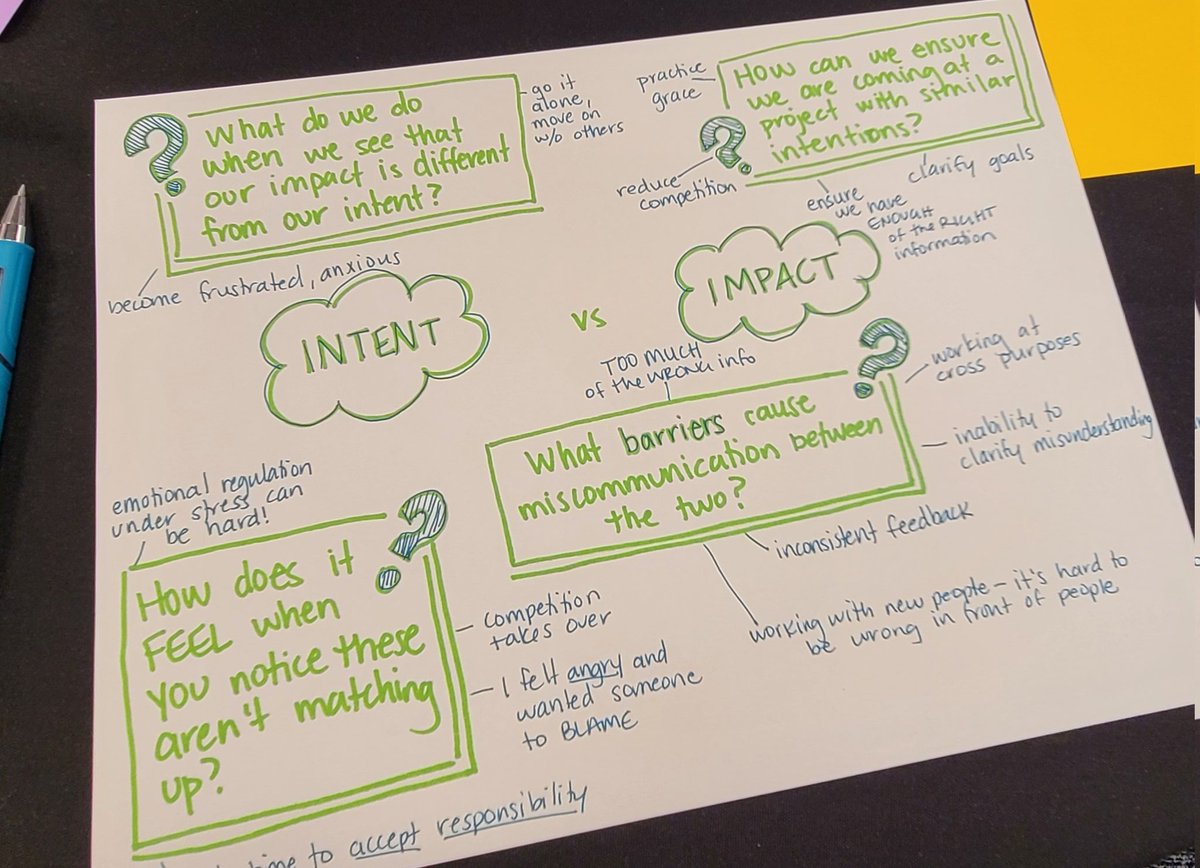 What do we do
when we see that
our impact is different
from our intent?
go it
alone,
move on
w/o others
become frustrated, anxious
practice
grace
How can we ensure
we are coming at a
project with similar
intentions?
reduce
competition
clarify goals
ensure
we have
ENOUGH
of the RIGHT
information
INTENT
vs
IMPACT
TOO MUCH
of the WRONG info
What barriers cause
miscommunication between
the two?
working at
cross purposes
inability to
clarify misunderstanding
inconsistent feedback
working with new people - it's hard to
be wrong in front of people
emotional regulation
under stress can
be hard!
How does it
FEEL when
you notice these
aren't matching
up?
competition
takes over
I felt angry and
wanted someone
to BLAME
time to accept responsibility